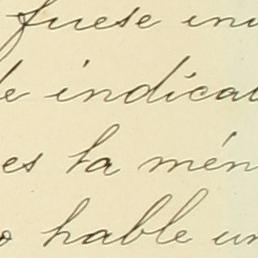 fuese ini
le indicau
es ta mén
o hable un